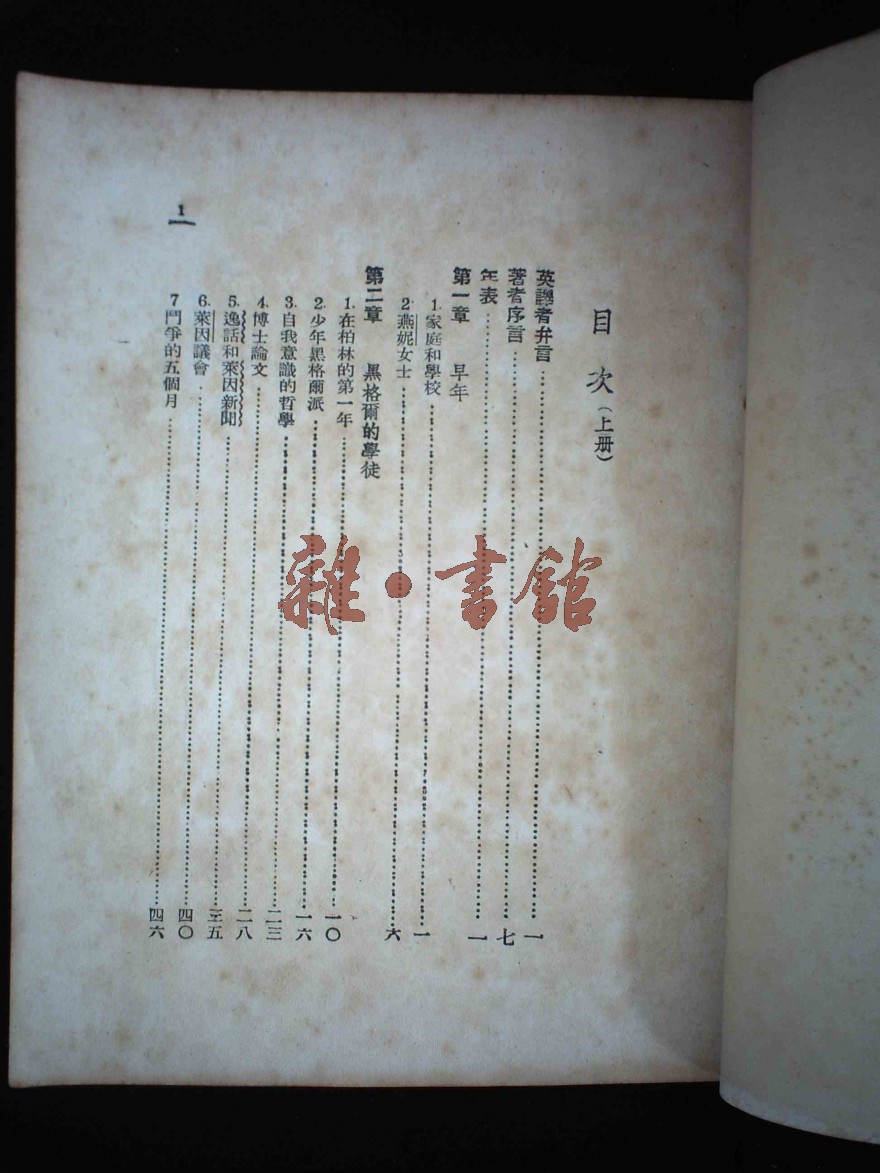 目次（上册）
英譯者弁言……一
著者序言……七
年表……一
第一章 早年
1. 家庭和學校……一
2 燕妮女士……六
第二章 黑格爾的學徒
1. 在柏林的第一年……一〇
2. 少年黑格爾派……一六
3. 自我意識的哲學……二三
4. 博士論文……二八
5. 逸話和萊因新聞……三五
6. 萊因議會……四〇
7 鬥爭的五個月……四六
1
雜·書館